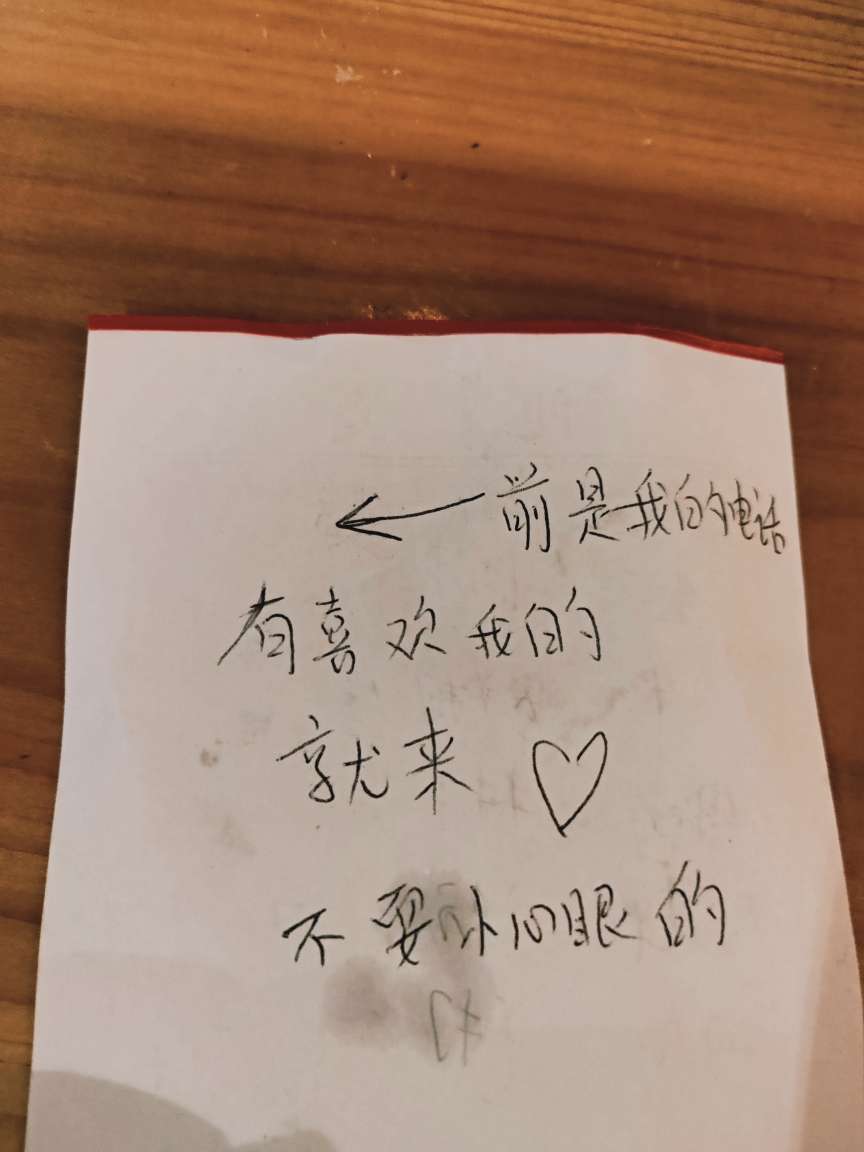 前是我的电话
有喜欢我的
就来
不要小心眼的